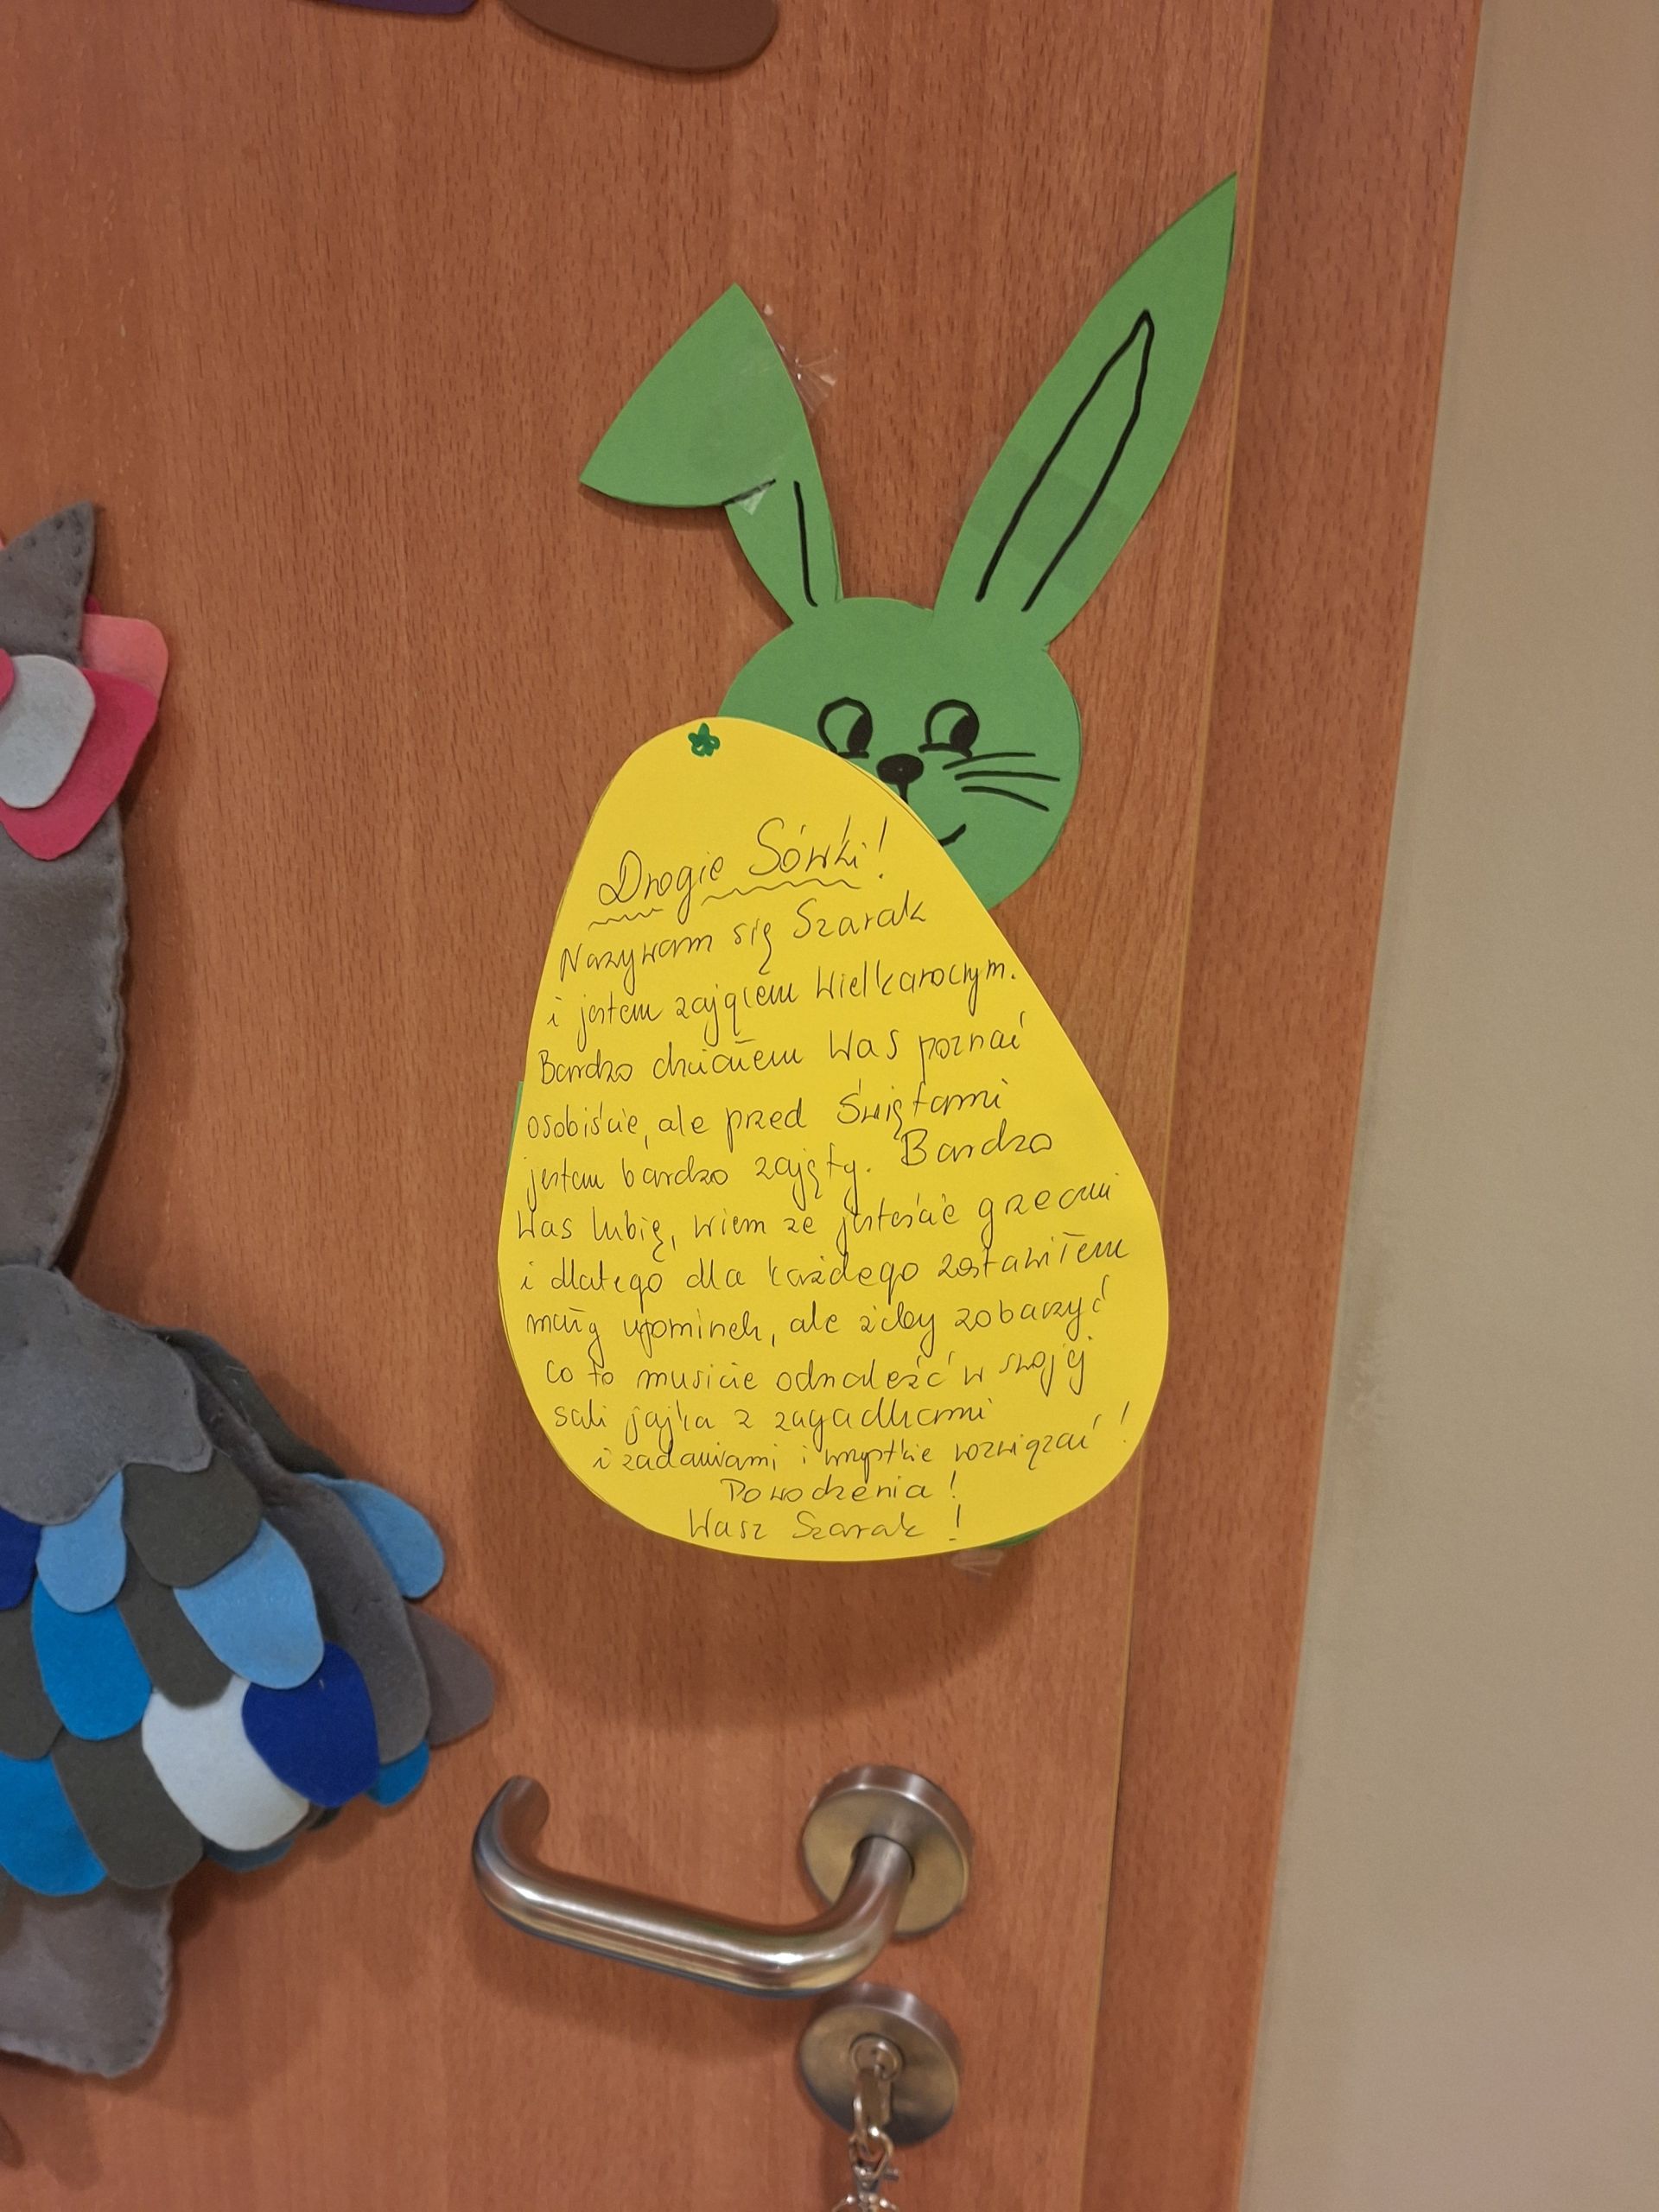 Drogie Sówki!
Nazywam się Szarak
i jestem zającem Wielkanocnym.
Bardzo chciałem Was poznać
osobiście, ale przed Świętami
jestem bardzo zajęty. Bardzo
Was lubię, wiem ze jesteście grzeczni
i dlatego dla każdego zostawiłem
mały upominek, ale żeby zobaczyć
co to musicie odnaleźć w swojej
sali jajka z zagadkami
i zadaniami i wszystkie rozwiązać!
Powodzenia!
Wasz Szarak!